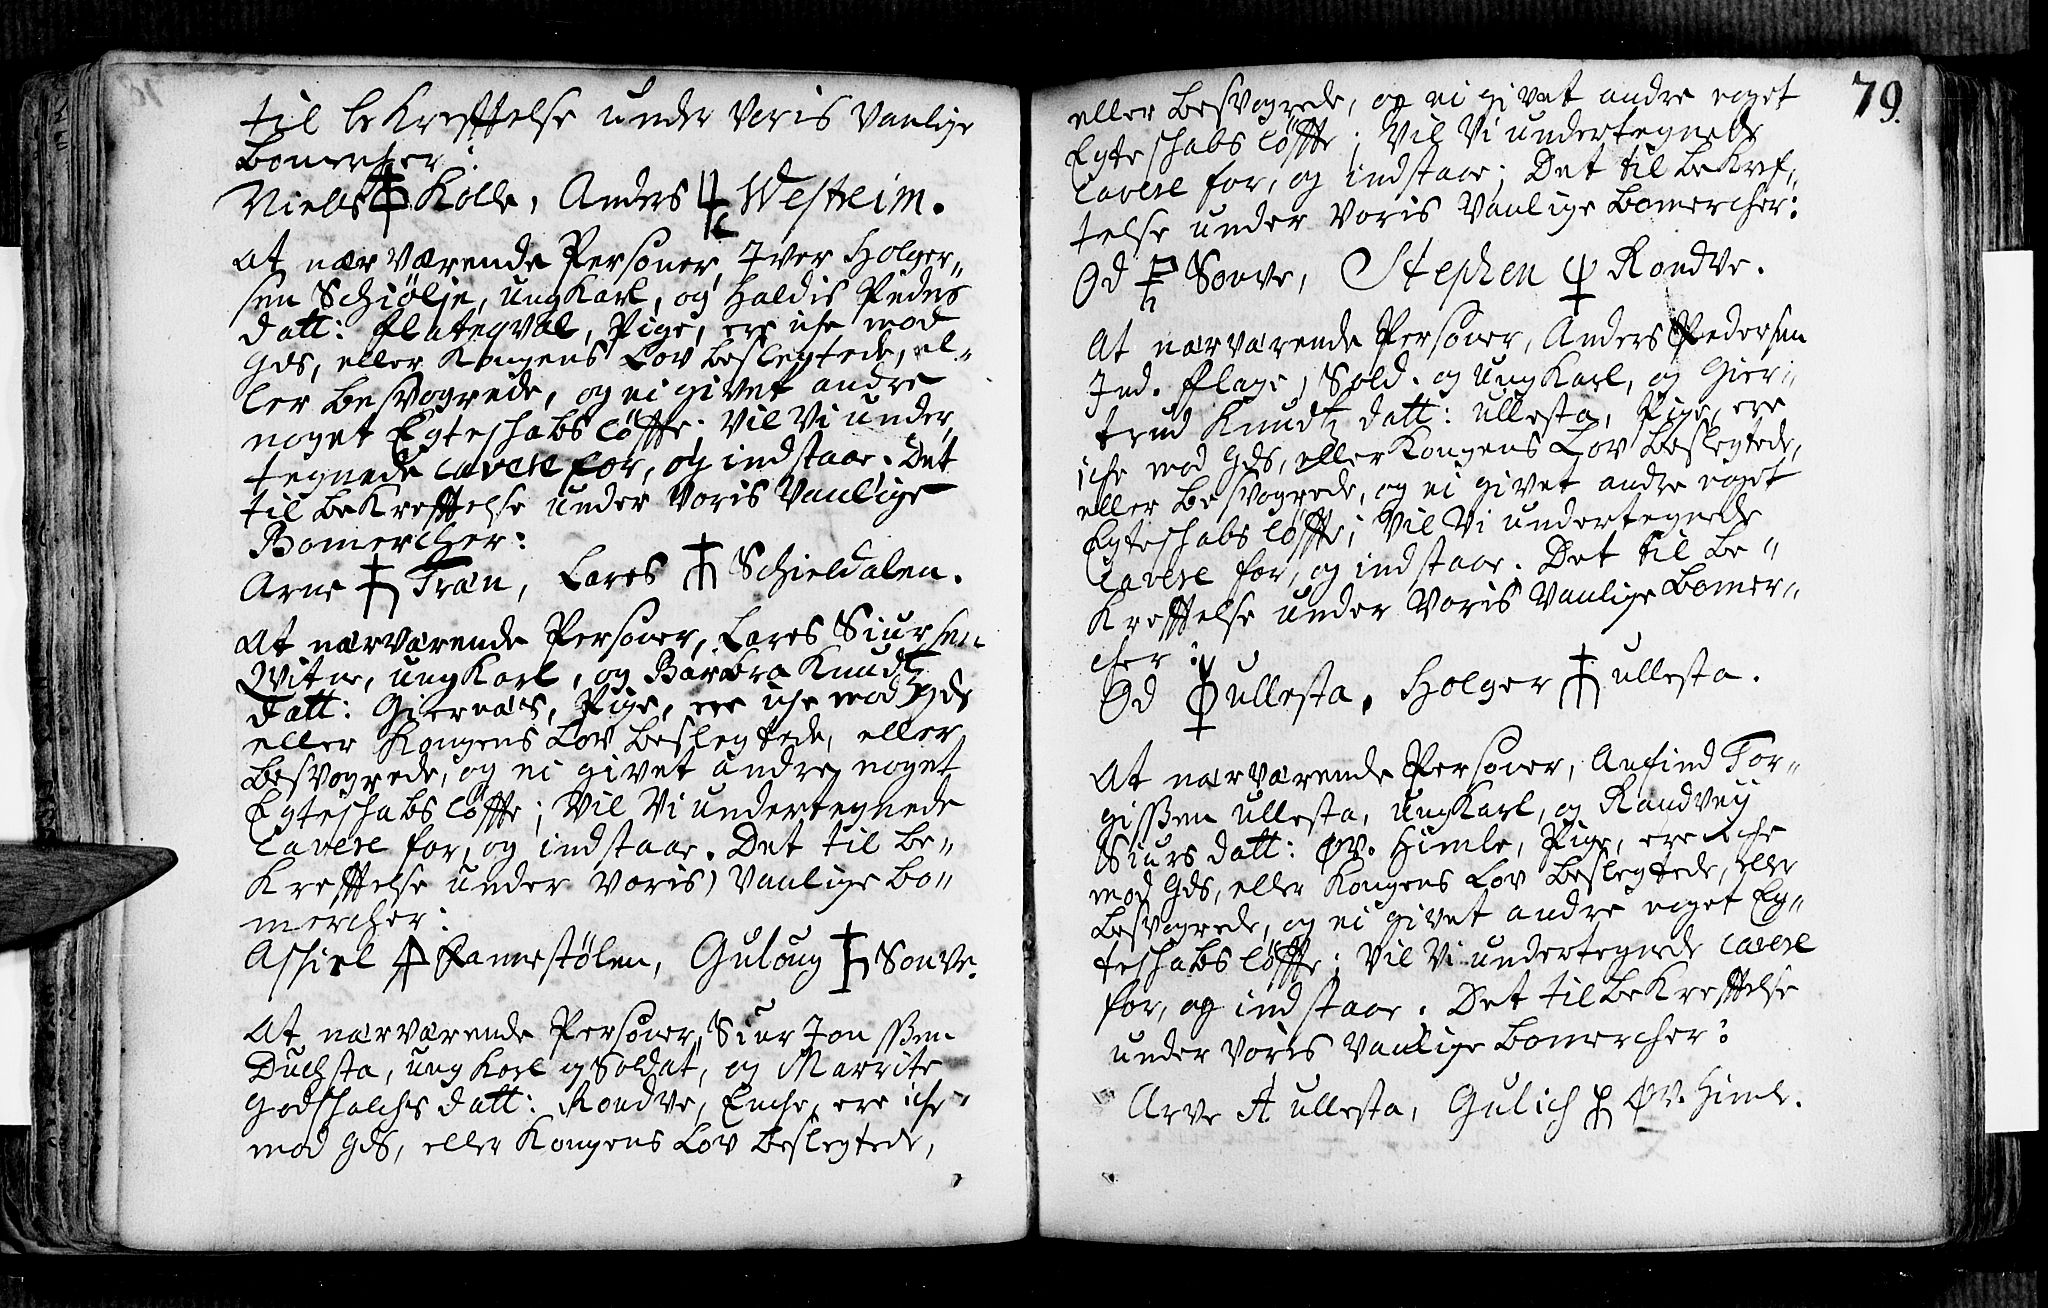 til bekrefftelse under voris vanlige
Bomercher:
Niels Kolle, Anders Westreim.
At nærværende Personer, Iver Holger,,
sen Schiølje, ungkarl, og Haldis Peders
datt: flateqval, Pige, ere iche mod
Gds, eller Kongens Lov beslegtede, el,,
ler besvogrede, og ei givet andre
noget Egteschabs løffte; Vil Vi under,,
tegnede cavere for, og indstaae. Det
til bekrefftelse under Voris Vanlige
Bomercher:
Arne Træn, Lares Schieldalen.
At nærværende Personer, Lares Siursen
Witne, ungkarl, og Barbra Knudtz
datt: Giernæs, Pige, ere iche mod Gds
eller Kongens Lov beslegtede, eller
besvogrede, og ei givet andre noget
Egteschabs løffte; Vil Vi undertegnede
cavere for, og indstaae. Det til be,,
krefftelse under Voris Vanlige Bo,,
mercher:
Aschiel Fannestølen, Guloug Sonve.
At nærværende Personer, Siur Jonssen
Duchsta, ungkarl og Soldat, og Marrite
Godschalchs datt: Rondve, Enche, ere iche
mod Gds, eller Kongens Lov beslegtede,
79.
eller besvogrede, og ei givet andre noget
Egteschabs løffte; Vil Vi undertegnede
cavere for, og indstaae; Det til bekref,,
telse under Voris Vanlige Bomercher:
Od Sonve, Stephen Rondve.
At nærværende Personer, Anders Pedersen
Ind. flage, Sold. og ungkarl, og Gier,,
trud Knudtz datt: ullesta, Pige, ere
iche mod Gds, eller Kongens Lov beslegtede,
eller besvogrede, og ei givet andre noget
Egteschabs løffte; Vil Vi undertegnede
cavere for, og indstaae. Det til be,,
krefftelse under Voris Vanlige Bomer,,
cher:
Od ullesta, Holger ullesta.
At nærværende Personer, Anfind Tor,,
gissen ullesta, ungkarl, og Randveij
Siurs datt: Øv. Himle, Pige, ere iche
mod Gds, eller Kongens Lov beslegtede, eller
besvogrede, og ei givet andre noget Eg,,
teschabs løffte; Vil Vi undertegnede cavere
for, og indstaae. Det til bekrefftelse
under Voris Vanlige Bomercher:
Arve A ullesta, Gulich Øv. Himle.